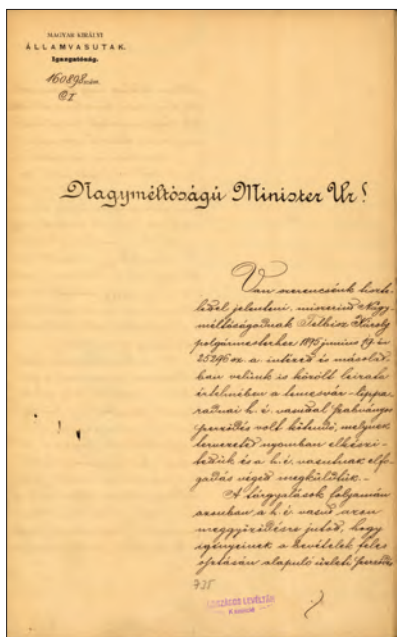 MAGYAR KIRÁLYI
ÁLLAMVASUTAK.
Igazgatóság.
160898 szám.
CI
Nagyméltóságú Minister Úr!
Van szerencsénk tiszte-
lettel jelenteni, miszerint Nagy-
méltóságodnak Telbisz Károly
polgármesterhez 1895 junius 19-én
25296 sz. a. intézett és másolat-
ban velünk is közölt leirata
értelmében a temesvár-lippa-
radnai h. é. vasuttal szabványos
szerződés volt kötendő, melynek
tervezetét nyomban elkészi-
tettük és a h. é. vasutnak elfo-
gadás végett megküldtük.-
A tárgyalások folyamán
azonban a h. é. vasut azon
meggyőződésre jutott, hogy
igényeinek a bevételek feles
osztásán alapuló üzleti szerződés
735
ORSZÁGOS LEVÉLTÁR